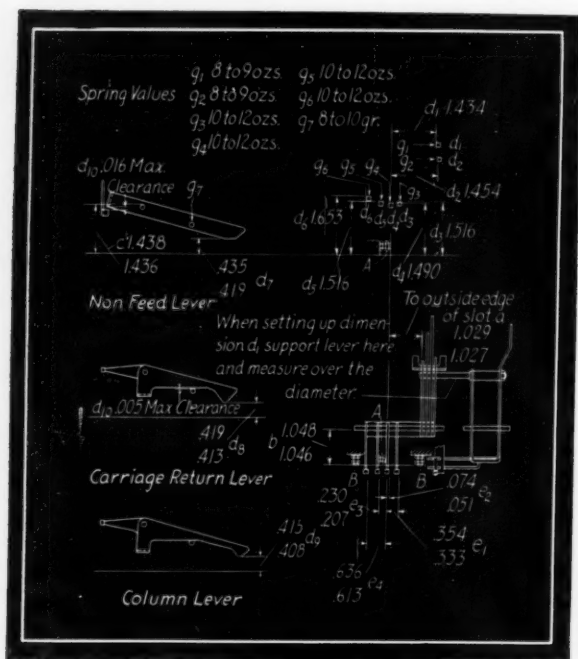 Spring Values
g1 8 to 9 ozs.
g2 8 to 9 ozs.
g3 10 to 12 ozs.
g4 10 to 12 ozs.
g5 10 to 12 ozs.
g6 10 to 12 ozs.
g7 8 to 10 gr.
d1 1.434
g1 d1
g2 d2
d2 1.454
g6 g5 g4 g3
d10 .016 Max.
Clearance
g7
d6 1.653
d6 d5 d4 d3
d3 1.516
A
c 1.438
1.436
.435
.419 d7
d5 1.516
d4 1.490
Non Feed Lever
To outside edge
of slot a
1.029
1.027
When setting up dimen-
sion d, support lever here
and measure over the
diameter.
d10 .005 Max Clearance
.419
.413 d8
A
b 1.048
1.046
B B
Carriage Return Lever
.074
.051 e2
.230
.207 e3
.354
.333 e1
.415
.408 d9
.636
.613 e4
Column Lever